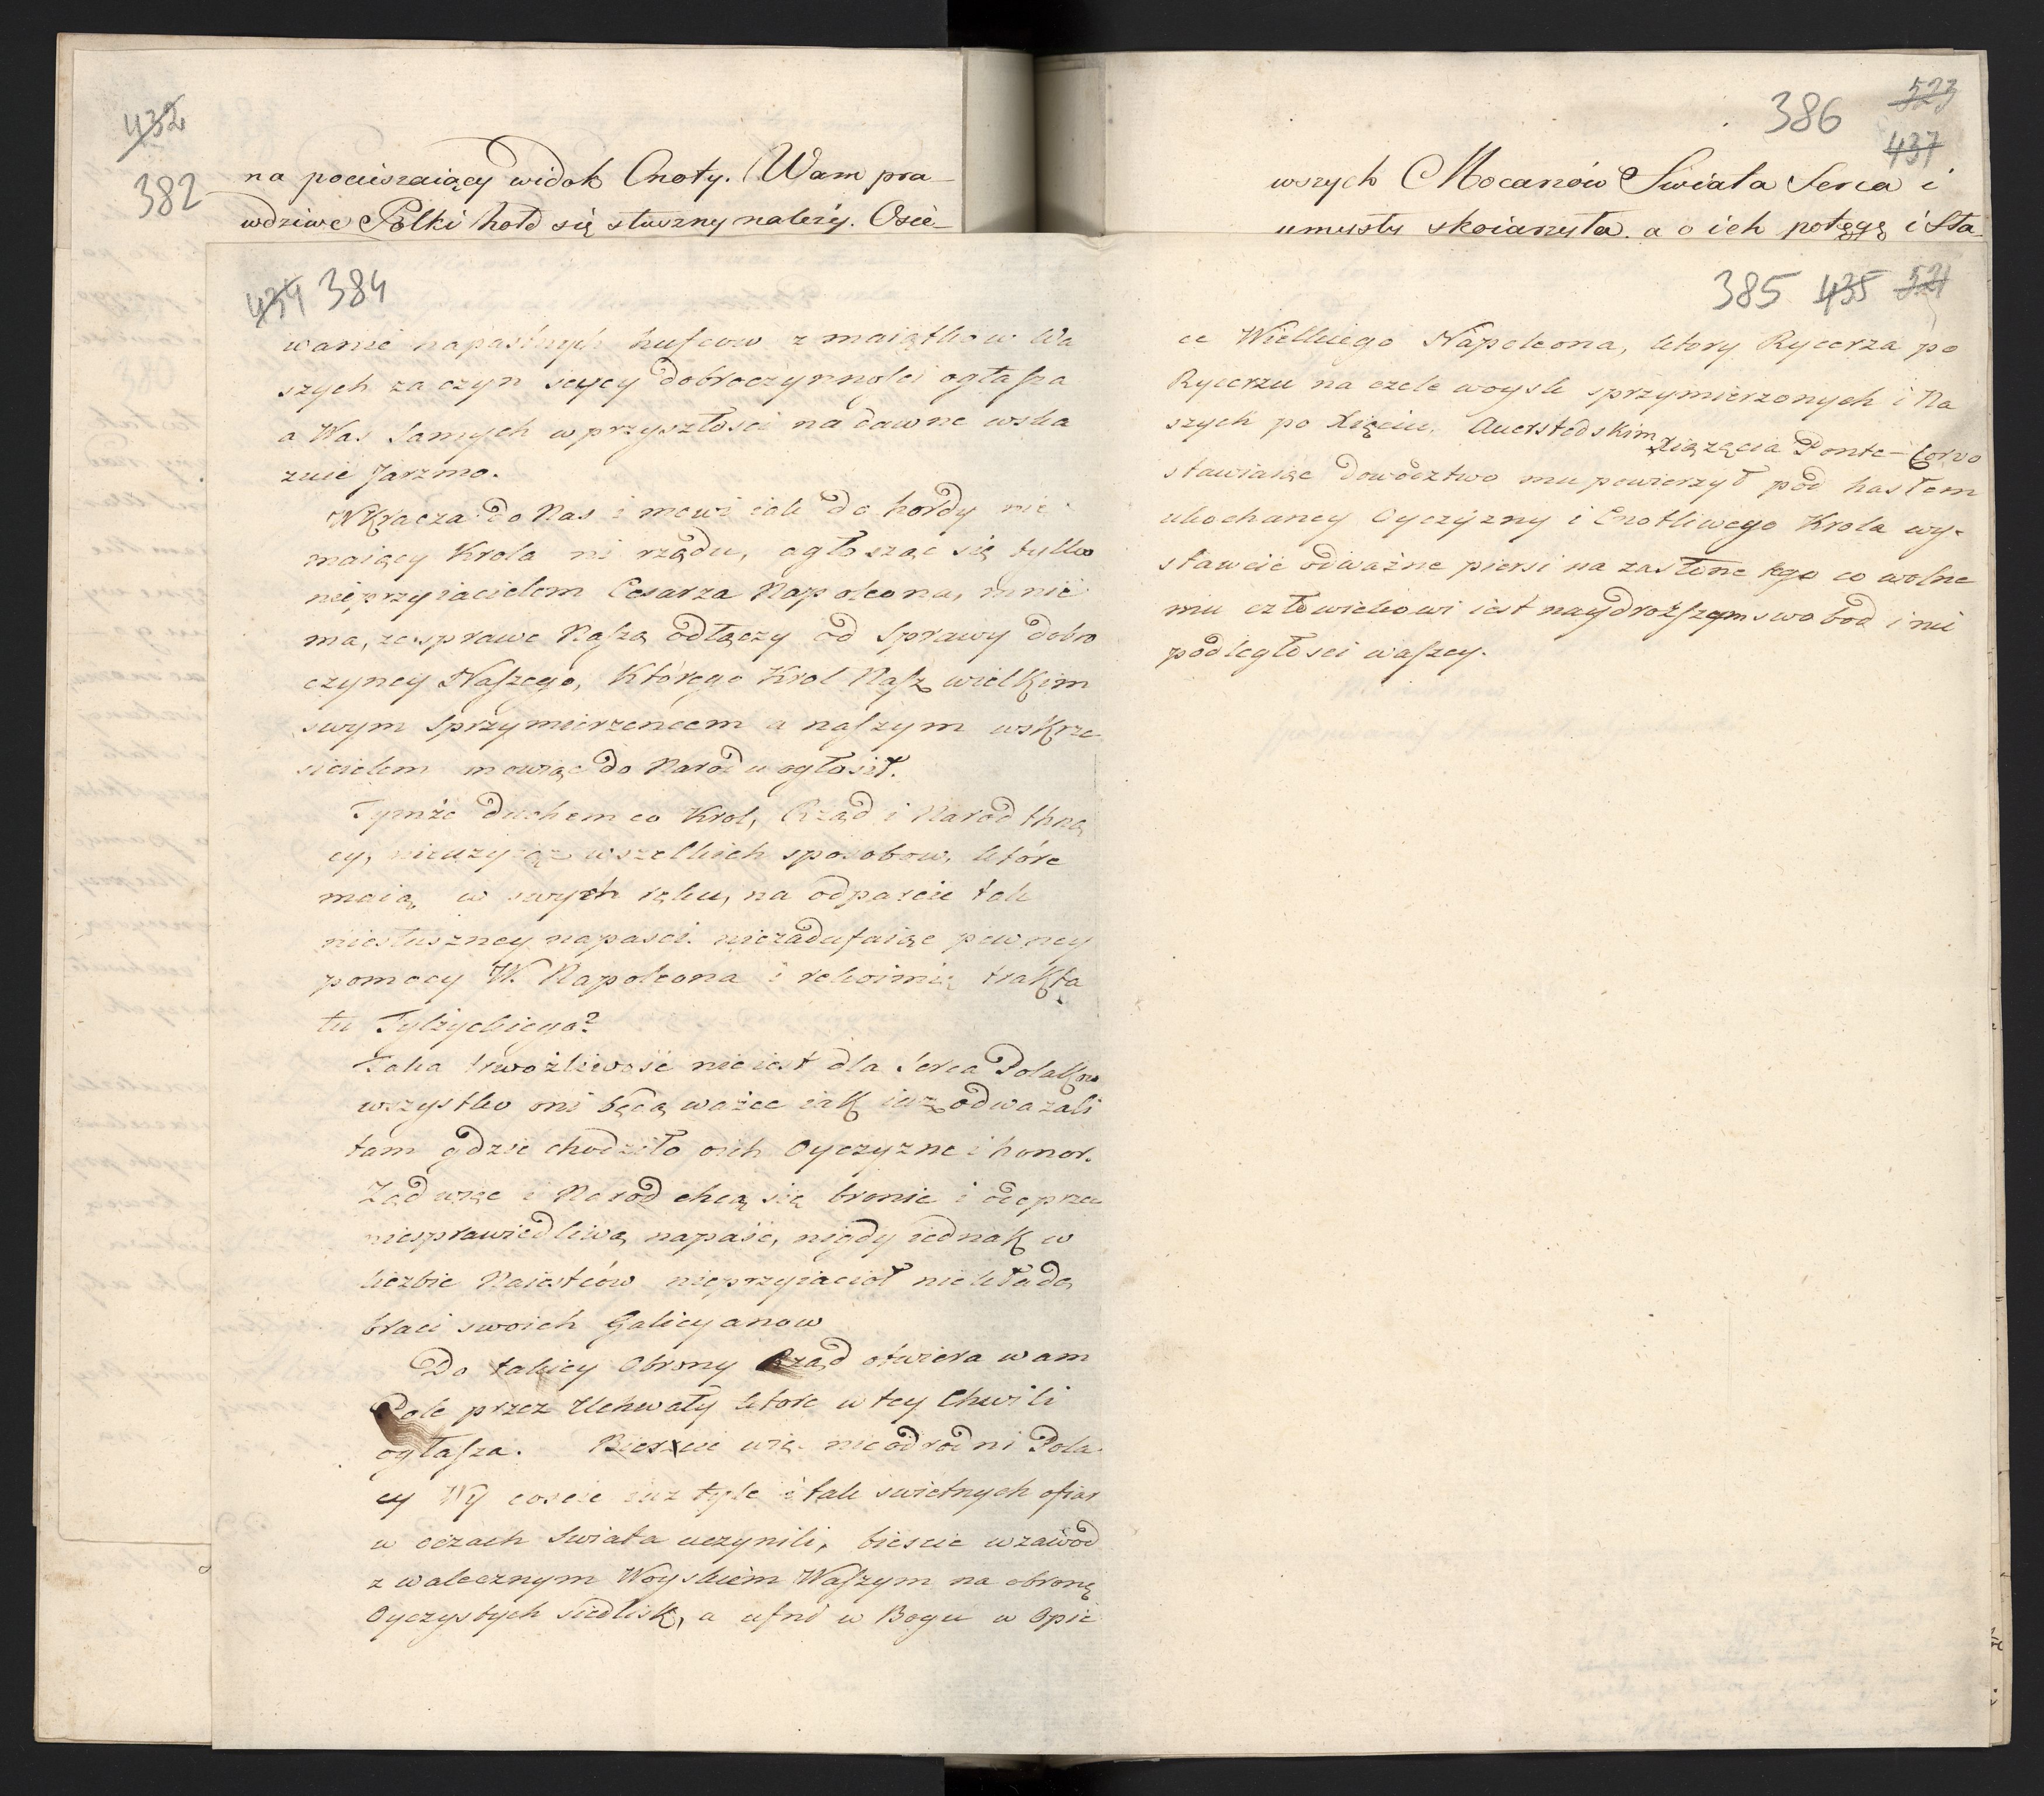 432
382
na pocieszaiący widok Cnoty. Wam pra
wdziwe Polki hołd się słuszny należy. Osie
386 523
437
wszych Mocarzów Swiata Serca i
umysły skoiarzyła, a o ich potęgę i Sta
434 384
wanie napastnych hufcow z maiątkow Wa
szych za czyn scycy dobroczynności ogłasza
a Was samych w przyszłości na dawne wska
zuie Jarzmo.
Wkracza do Nas i mowi iak do hordy nie
maiący Krola ni rządu, ogłoszac się tylko
nieprzyiacielem Cesarza Napoleona, mnie
ma, ze sprawe Naszą odłączy od Sprawy dobro
czyncy Naszego, Którego Krol Nasz wielkim
swym Sprzymierzencem a naszym wskrze
sicielem mowiąc do Narodu ogłosił.
Tymże duchem co Krol, Rząd i Narod thną
cy, nieużyiąż wszelkich sposobow, które
maią w swych ręku, na odparcie tak
niesłuszney napasci. niezadufaiąc pewney
pomocy W. Napoleona i rekoimią trakta
tu Tylżyckiego?
Taka trwożliwość nie iest dla Serca Polakow
wszystko oni będą ważec iak iuz odwazali
tam gdzie chodziło o ich Oyczyzne i honor.
Ządwząc i Narod chcą się bronic i odeprzec
niesprawiedliwą napaść, nigdy iednak w
liczbie Naiestców nieprzyiacioł niekładą
braci swoich Galicyanow
Do takiey Obrony Rząd otwiera wam
Pole przez Uchwały ktore w tey Chwili
ogłasza. Bierzcie więc nieodrodni Pola
cy Wy coscie iuz tyle i tak swietnych ofiar
w oczach Swiata uczynili, biescie w zawod
z walecznym Woyskiem Waszym na obronę
Oyczystych siedlisk, a ufni w Bogu w Opie
385 435 521
ce Wielkiego Napoleona, ktory Rycerza po
Rycerzu na czele woysk sprzymierzonych i Na
szych po Xięciu, Auerstedskim Xiązęcia Ponte-Corvo
stawiaiąc dowodztwo mu powierzył pod hasłem
ukochaney Oyczyzny i Cnotliwego Krola wy-
stawcie odważne piersi na zasłone tego co wolne
mu człowiekowi iest naydroższym swobod i nie
podległosci waszey.